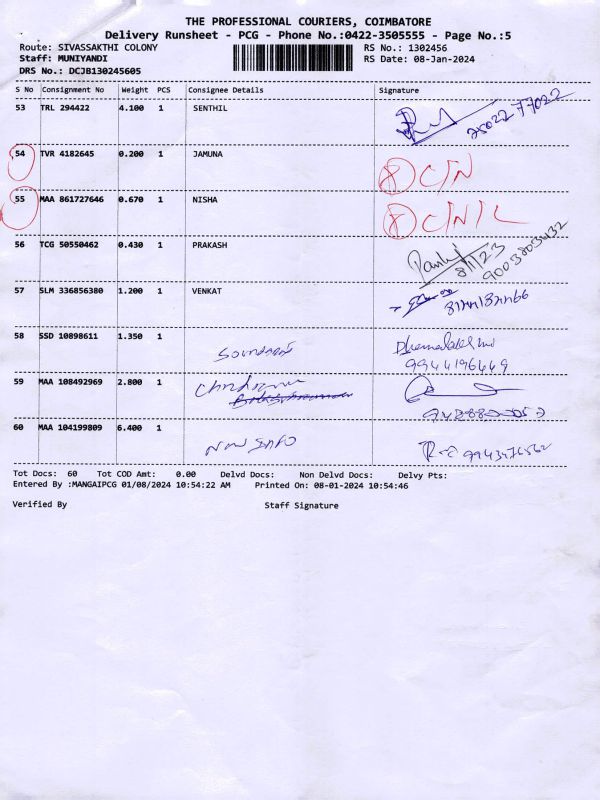 THE PROFESSIONAL COURIERS, COIMBATORE
Delivery Runsheet - PCG - Phone No.:0422-3505555 - Page No.:5
Route: SIVASSAKTHI COLONY RS No.: 1302456
Staff: MUNIYANDI RS Date: 08-Jan-2024
DRS No.: DCJB130245605
S No Consignment No Weight PCS Consignee Details Signature
53 TRL 294422 4.100 1 SENTHIL
54 TVR 4182645 0.200 1 JAMUNA C/N
55 MAA 861727646 0.670 1 NISHA C/N/L
56 TCG 50550462 0.430 1 PRAKASH 8/1/23
57 SLM 336856380 1.200 1 VENKAT
58 SSD 10898611 1.350 1
9944196449
59 MAA 108492969 2.800 1
60 MAA 104199809 6.400 1
Tot Docs: 60 Tot COD Amt: 0.00 Delvd Docs: Non Delvd Docs: Delvy Pts:
Entered By :MANGAIPCG 01/08/2024 10:54:22 AM Printed On: 08-01-2024 10:54:46
Verified By Staff Signature